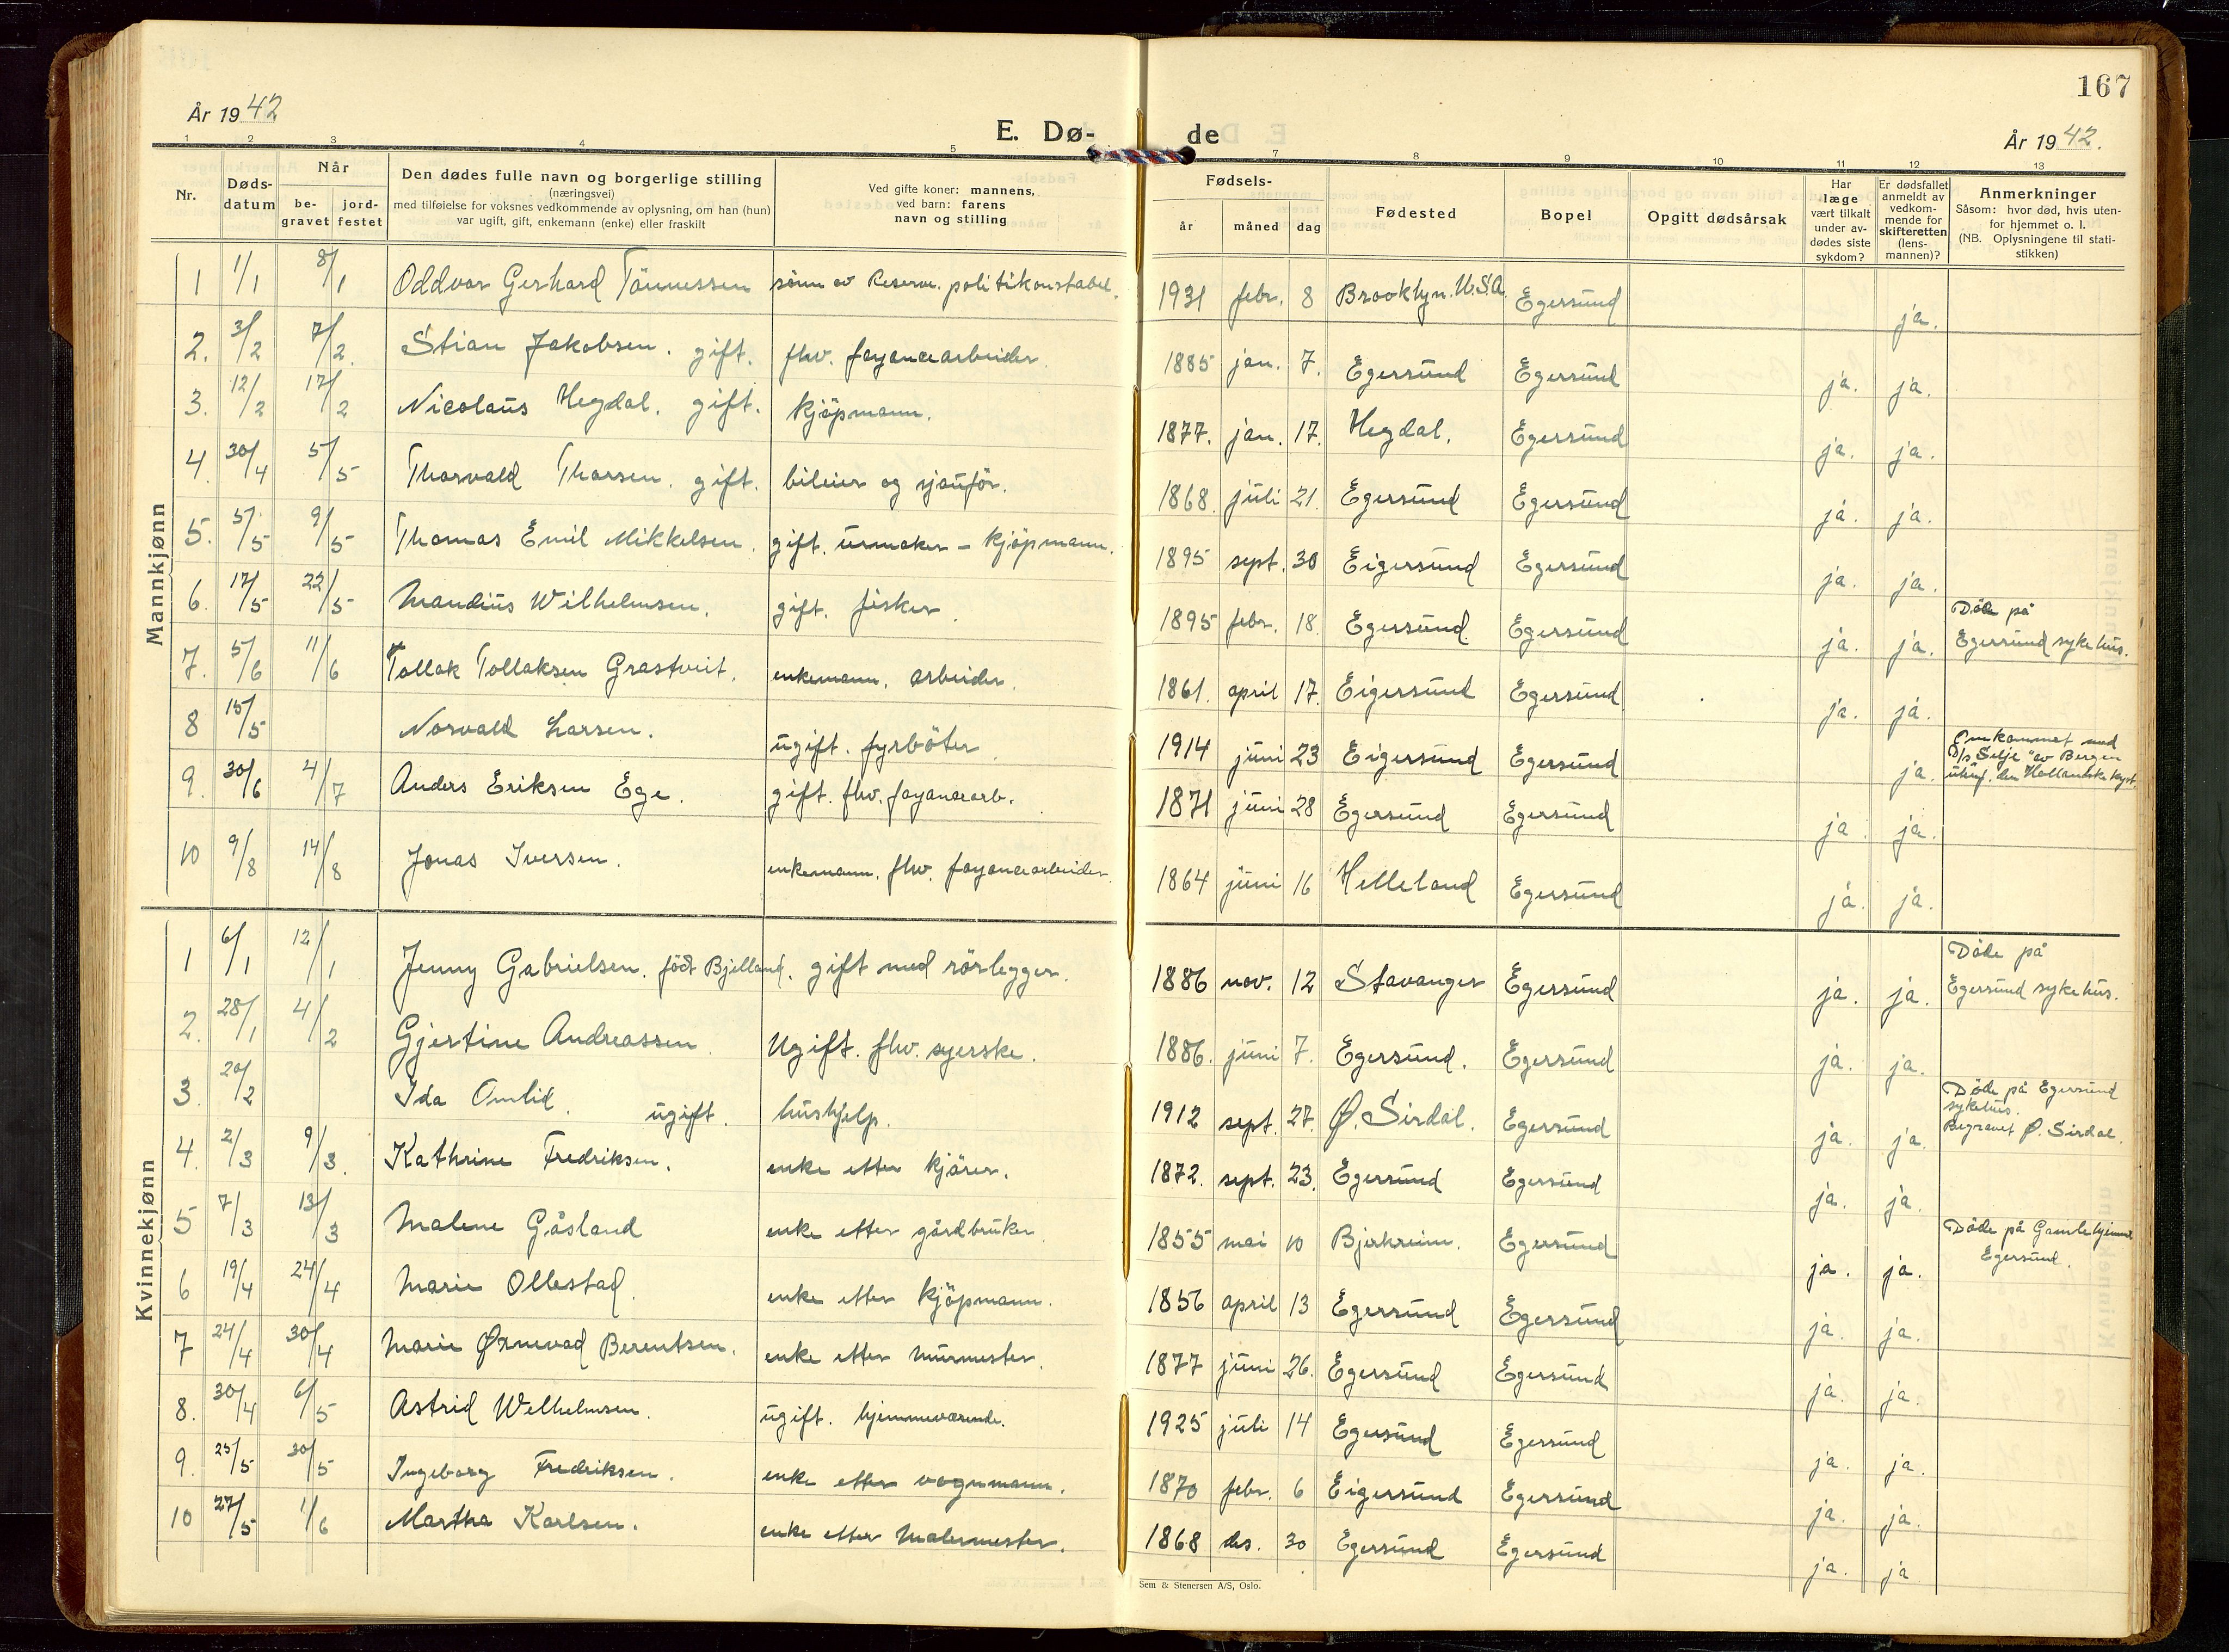 167
År 1942
E. Dø-
de
År 1942.
1 2 3 4 5 7 8 9 10 11 12 13
Nr.
Døds-
datum
Når
be-
gravet
jord-
festet
Den dødes fulle navn og borgerlige stilling
(næringsvei)
med tilføielse for voksnes vedkommende av oplysning, om han (hun)
var ugift, gift, enkemann (enke) eller fraskilt
Ved gifte koner: mannens,
ved barn: farens
navn og stilling
Fødsels-
år måned dag
Fødested
Bopel
Opgitt dødsårsak
Har
læge
vært tilkalt
under av-
dødes siste
sykdom?
Er dødsfallet
anmeldt av
vedkom-
mende for
skifteretten
(lens-
mannen)?
Anmerkninger
Såsom: hvor død, hvis uten-
for hjemmet o. l.
(NB. Oplysningene til stati-
stikken)
Mannkjønn
1 1/1 8/1 Oddvar Gerhard Tönnessen sönn av Reserve. politikonstabel. 1931 febr. 8 Brooklyn. U.S.A. Egersund ja.
2. 3/2 7/2. Stian Jakobsen. gift. fhv. fayancearbeider. 1885 jan. 7. Egersund Egersund ja. ja.
3. 12/2 17/2 Nicolaus Hegdal. gift. kjöpmann. 1877. jan. 17. Hegdal. Egersund ja. ja.
4. 30/4 5/5 Thorvald Thorsen. gift. bileier og sjauför. 1868. juli 21. Egersund Egersund ja. ja.
5. 5/5 9/5 Thomas Emil Mikkelsen. gift. urmaker - kjöpmann. 1895 sept. 30 Eigersund Egersund ja. ja.
6. 17/5 22/5 Mandius Wilhelmsen. gift. fisker. 1895 febr. 18. Egersund. Egersund ja. ja. Döde på
Egersund sykehus.
7. 5/6 11/6 Tollak Tollaksen Grastveit. enkemann. arbeider. 1861. april 17. Eigersund Egersund ja. ja.
8 15/5 Norvald Larsen. ugift. fyrböter. 1914 juni 23 Eigersund Egersund ja. Omkommet med
D/s "Selje" av Bergen
den Hollandske kyst.
9. 30/6 4/7 Anders Eriksen Ege. gift. fhv. fayancearb. 1871 juni 28 Egersund Egersund ja. ja.
10 9/8 14/8 Jonas Iversen. enkemann. fhv. fayancearbeider. 1864 juni 16 Helleland Egersund ja. ja.
Kvinnekjønn
1 6/1 12/1 Jenny Gabrielsen. födt Bjelland. gift med rörlegger. 1886 nov. 12 Stavanger Egersund ja. ja. Döde på
Egersund sykehus.
2. 28/1 4/2 Gjertine Andreassen Ugift. fhv. syerske. 1886. juni 7. Egersund. Egersund ja. ja.
3. 20/2 Ida Omlid. ugift. hushjelp. 1912 sept. 27. Ø. Sirdal. Egersund ja. ja. Döde på Egersund
sykehus.
Begravet Ø. Sirdal.
4. 2/3 9/3. Kathrine Fredriksen. enke etter kjörer. 1872. sept. 23. Egersund Egersund ja. ja.
5 7/3 13/3 Malene Gåsland enke etter gårdbruker. 1855 mai 10 Bjerkreim. Egersund ja. ja. Döde på Gamlehjemmet
Egersund.
6 19/4 24/4 Marie Ollestad. enke etter kjöpmann. 1856 april 13 Egersund Egersund ja. ja.
7 24/4 30/4 Marie Ørnevad Berentsen. enke etter murmester. 1877 juni 26. Egersund Egersund ja. ja.
8. 30/4 6/5 Astrid Welhelmsen. ugift. hjemmeværende. 1925 juli 14 Egersund Egersund ja. ja.
9. 25/5 30/5 Ingeborg Fredriksen. enke etter vognmann. 1870 febr. 6 Eigersund Egersund ja. ja.
10 27/5 1/6 Martha Karlsen. enke etter malermester. 1868 des. 30 Egersund Egersund ja. ja.
Sem & Stenersen A/S, Oslo.